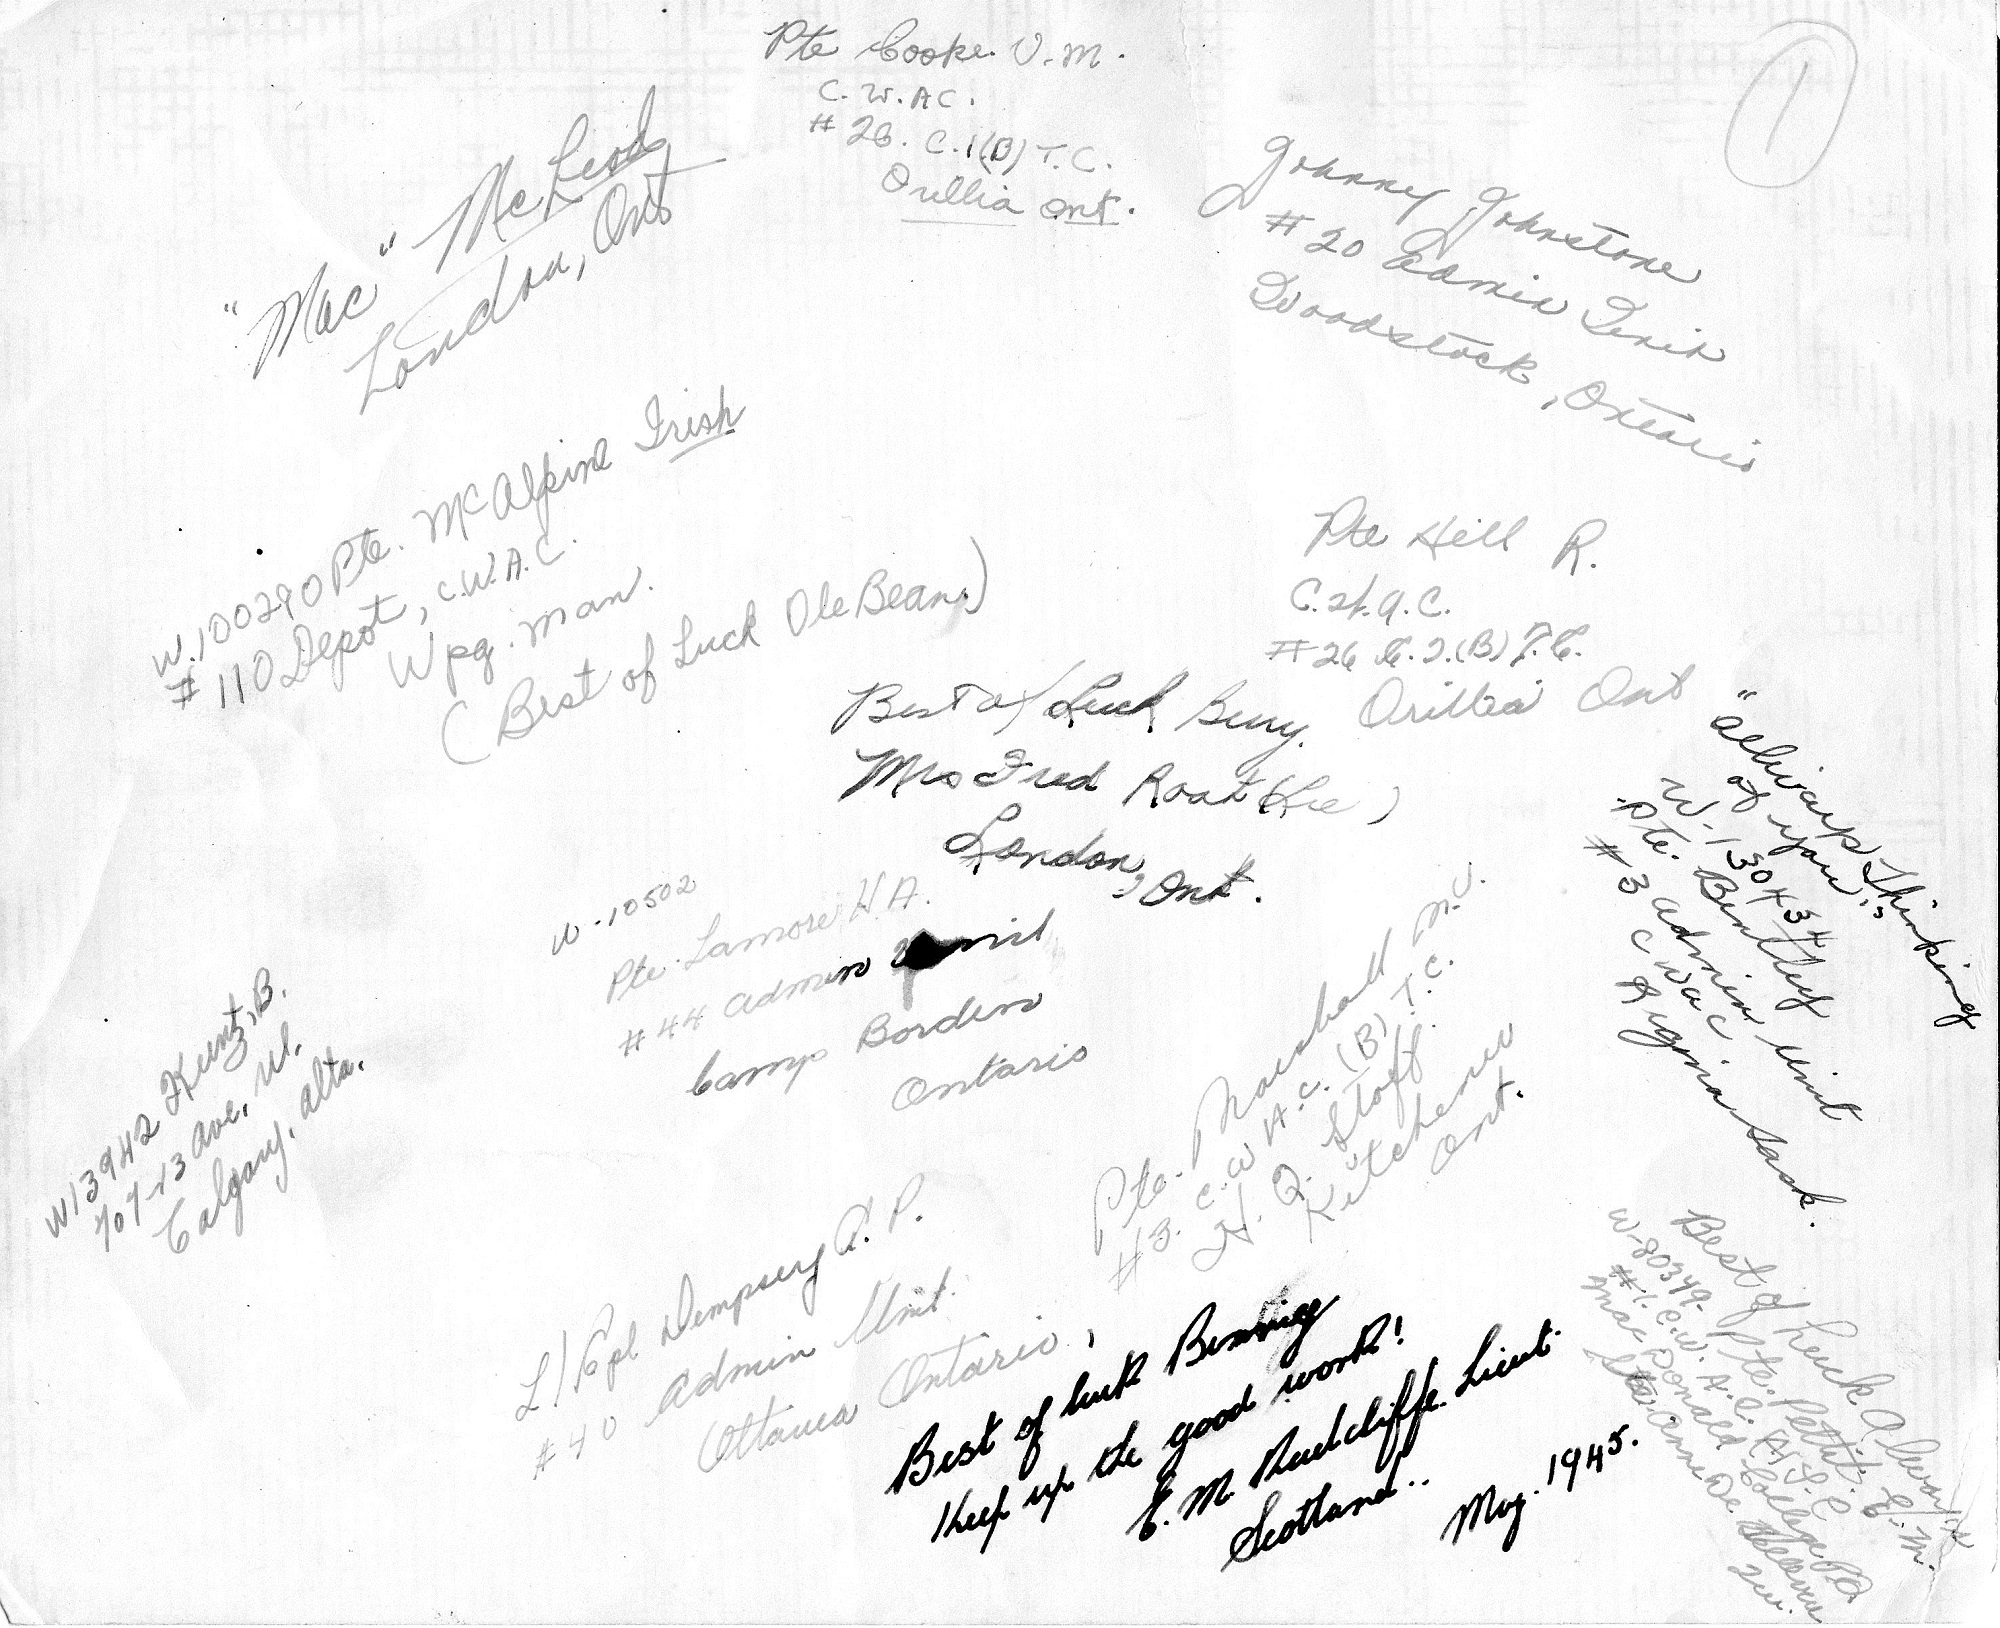 Pte Cooke. V. M.
C. W. A C.
# 26. C. I (B) T. C.
Orillia Ont.
1
"Mac" McLeod
London, Ont
Johnny Johnstone
# 20 Admin Unit
Woodstock, Ontario
W. 100290 Pte. McAlpine Irish
# 110 Depot, C.W.A.C.
Wpg. Man.
(Best of Luck Ole Bean.)
Pte Hill R.
C. W. A. C.
# 26 C. I. (B) T. C.
Orillia Ont
Best of Luck
Mrs Fred Root (Lee)
London, Ont.
"Allways Thinking
of you".
W-130434
Pte. Bentley
# 3 Admin Unit
C W A C
Regina Sask.
W-10502
Pte. Lamore H. A.
# 44 Admin Unit
Camp Borden
Ontario
W13942 Kuntz, B.
707-13 Ave. W.
Calgary, Alta.
Pte. Marshall M. V.
# 3. C. W A. C. (B) T. C.
H. Q. Staff.
Kitchener
Ont.
L/Cpl Dempsey A. P.
# 40 Admin Unit.
Ottawa Ontario,
Best of luck
Keep up the good work!
E. M. Radcliffe. Lieut.
Scotland..
May. 1945.
Best of Luck Always
W-80349- Pte. Pettit. E. M.
# 1. C. W. A. C.
MacDonald College P.O.
Ste. Anne De Bellevue
Que.